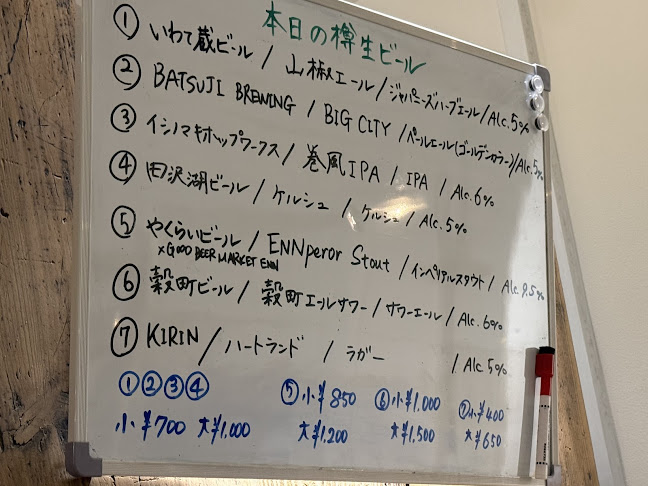 本日の樽生ビール
① いわて蔵ビール / 山椒エール / ジャパニーズハーブエール / Alc.5%
② BATSUJI BREWING / BIG CITY / ペールエール(ゴールデンカラー) / Alc.5%
③ イシノマキホップワークス / 巻風IPA / IPA / Alc.6%
④ 田沢湖ビール / ケルシュ / ケルシュ / Alc.5%
⑤ やくらいビール / ENNperor Stout / インペリアルスタウト / Alc.9.5%
×GOOD BEER MARKET ENN
⑥ 穀町ビール / 穀町エールサワー / サワーエール / Alc.6%
⑦ KIRIN / ハートランド / ラガー / Alc5%
①②③④ ⑤小¥850 ⑥小¥1,000 ⑦小¥400
小¥700 大¥1,000 大¥1,200 大¥1,500 大¥650